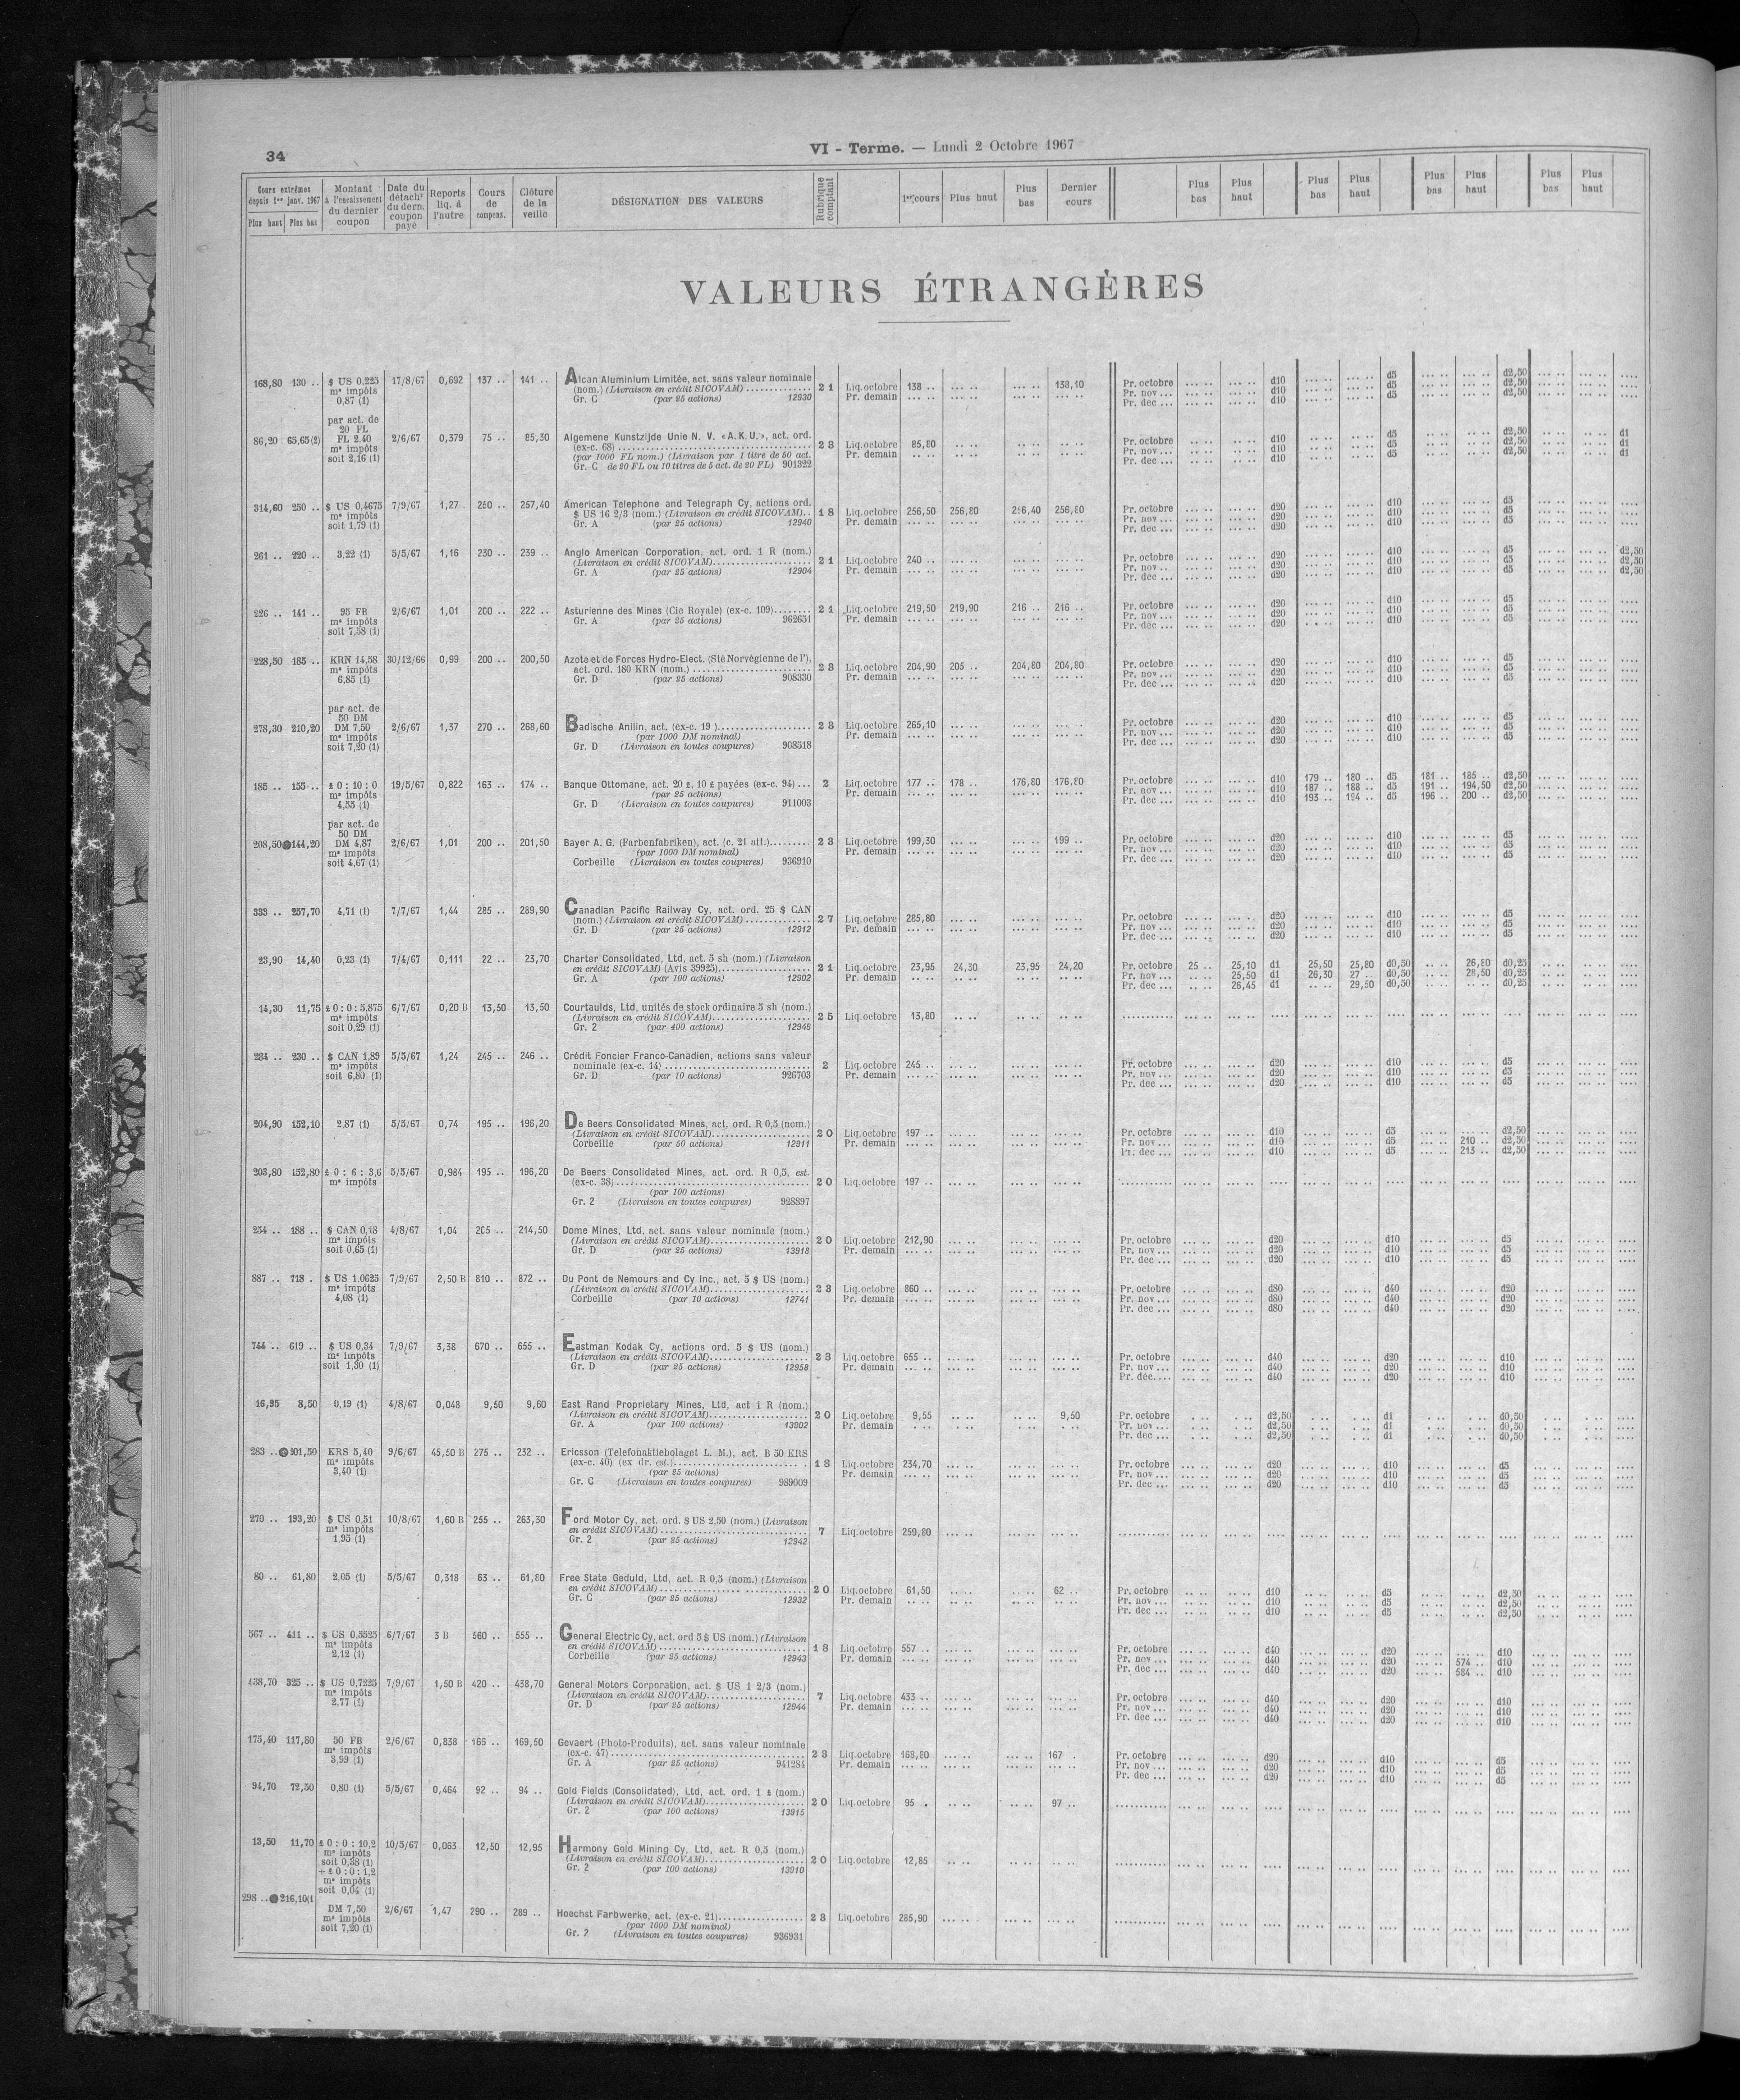 34
VI - Terme. — Lundi 2 Octobre 1967
Cours extrêmes depuis 1er janv. 1967 Plus haut Plus bas | Montant à l'encaissement du dernier coupon | Date du détacht du dern. coupon payé | Reports liq. à l'autre | Cours de compens. | Clôture de la veille | DÉSIGNATION DES VALEURS | Rubrique comptant | 1er cours | Plus haut | Plus bas | Dernier cours | Plus bas | Plus haut | Plus bas | Plus haut | Plus bas | Plus haut | Plus bas | Plus haut
VALEURS ÉTRANGÈRES
168,80 130 .. $ US 0,225 17/8/67 0,692 137 .. 141 .. Alcan Aluminium Limitée, act. sans valeur nominale
me impôts (nom.) (Livraison en crédit SICOVAM) 21 Liq.octobre 138 .. 138,10 Pr. octobre d10 d5 d2,50
0,87 (1) Gr. C (par 25 actions) 12930 Pr. demain Pr. nov ... d10 d5 d2,50
Pr. dec ... d10 d5 d2,50
par act. de
20 FL
86,20 65,65(2) FL 2,40 2/6/67 0,379 75 .. 85,30 Algemene Kunstzijde Unie N. V. «A.K.U.», act. ord.
me impôts (ex-c. 68) 23 Liq.octobre 85,80 Pr. octobre d10 d5 d2,50 d1
soit 2,16 (1) (par 1000 FL nom.) (Livraison par 1 titre de 50 act. Pr. demain Pr. nov ... d10 d5 d2,50 d1
Gr. C de 20 FL ou 10 titres de 5 act. de 20 FL) 901322 Pr. dec ... d10 d5 d2,50 d1
314,60 250 .. $ US 0,4675 7/9/67 1,27 260 .. 257,40 American Telephone and Telegraph Cy, actions ord.
me impôts $ US 16 2/3 (nom.) (Livraison en crédit SICOVAM).. 18 Liq.octobre 256,50 256,80 256,40 256,80 Pr. octobre d20 d10 d5
soit 1,79 (1) Gr. A (par 25 actions) 12940 Pr. demain Pr. nov ... d20 d10 d5
Pr. dec ... d20 d10 d5
261 .. 220 .. 3,22 (1) 5/5/67 1,16 230 .. 239 .. Anglo American Corporation, act. ord. 1 R (nom.)
(Livraison en crédit SICOVAM) 21 Liq.octobre 240 .. Pr. octobre d20 d10 d5 d2,50
Gr. A (par 25 actions) 12904 Pr. demain Pr. nov .. d20 d10 d5 d2,50
Pr. dec ... d20 d10 d5 d2,50
226 .. 141 .. 95 FB 2/6/67 1,01 200 .. 222 .. Asturienne des Mines (Cie Royale) (ex-c. 109) 21 Liq.octobre 219,50 219,90 216 .. 216 .. Pr. octobre d20 d10 d5
me impôts Gr. A (par 25 actions) 962651 Pr. demain Pr. nov ... d20 d10 d5
soit 7,58 (1) Pr. dec ... d20 d10 d5
228,50 185 .. KRN 14,58 30/12/66 0,99 200 .. 200,50 Azote et de Forces Hydro-Elect. (Sté Norvégienne de l'),
me impôts act. ord. 180 KRN (nom.) 23 Liq.octobre 204,90 205 .. 204,80 204,80 Pr. octobre d20 d10 d5
6,85 (1) Gr. D (par 25 actions) 908330 Pr. demain Pr. nov ... d20 d10 d5
Pr. dec ... d20 d10 d5
par act. de
50 DM
278,30 210,20 DM 7,50 2/6/67 1,37 270 .. 268,60 Badische Anilin, act. (ex-c. 19) 23 Liq.octobre 265,10 Pr. octobre d20 d10 d5
me impôts (par 1000 DM nominal) Pr. demain Pr. nov ... d20 d10 d5
soit 7,20 (1) Gr. D (Livraison en toutes coupures) 908518 Pr. dec ... d20 d10 d5
185 .. 155 .. £ 0 : 10 : 0 19/5/67 0,822 163 .. 174 .. Banque Ottomane, act. 20 £, 10 £ payées (ex-c. 94) ... 2 Liq.octobre 177 .. 178 .. 176,80 176,80 Pr. octobre d10 179 .. 180 .. d5 181 .. 185 .. d2,50
me impôts (par 25 actions) Pr. demain Pr. nov ... d10 187 .. 188 .. d5 191 .. 194,50 d2,50
4,55 (1) Gr. D (Livraison en toutes coupures) 911003 Pr. dec ... d10 193 .. 194 .. d5 196 .. 200 .. d2,50
par act. de
50 DM
208,50 144,20 DM 4,87 2/6/67 1,01 200 .. 201,50 Bayer A. G. (Farbenfabriken), act. (c. 21 att.) 23 Liq.octobre 199,30 199 .. Pr. octobre d20 d10 d5
me impôts (par 1000 DM nominal) Pr. demain Pr. nov ... d20 d10 d5
soit 4,67 (1) Corbeille (Livraison en toutes coupures) 936910 Pr. dec ... d20 d10 d5
333 .. 257,70 4,71 (1) 7/7/67 1,44 285 .. 289,90 Canadian Pacific Railway Cy, act. ord. 25 $ CAN
(nom.) (Livraison en crédit SICOVAM) 27 Liq.octobre 285,80 Pr. octobre d20 d10 d5
Gr. D (par 25 actions) 12912 Pr. demain Pr. nov ... d20 d10 d5
Pr. dec ... d20 d10 d5
23,90 14,40 0,23 (1) 7/4/67 0,111 22 .. 23,70 Charter Consolidated, Ltd, act. 5 sh (nom.) (Livraison
en crédit SICOVAM) (Avis 39925) 21 Liq.octobre 23,95 24,30 23,95 24,20 Pr. octobre 25 .. 25,10 d1 25,50 25,80 d0,50 26,80 d0,25
Gr. A (par 100 actions) 12902 Pr. demain Pr. nov ... 25,50 d1 26,30 27 .. d0,50 28,50 d0,25
Pr. dec ... 26,45 d1 29,50 d0,50 d0,25
14,30 11,75 £ 0 : 0 : 5,875 6/7/67 0,20 B 13,50 13,50 Courtaulds, Ltd, unités de stock ordinaire 5 sh (nom.)
me impôts (Livraison en crédit SICOVAM) 25 Liq.octobre 13,80
soit 0,29 (1) Gr. 2 (par 400 actions) 12946
284 .. 230 .. $ CAN 1,89 5/5/67 1,24 245 .. 246 .. Crédit Foncier Franco-Canadien, actions sans valeur
me impôts nominale (ex-c. 14) 2 Liq.octobre 245 .. Pr. octobre d20 d10 d5
soit 6,80 (1) Gr. D (par 10 actions) 926703 Pr. demain Pr. nov ... d20 d10 d5
Pr. dec ... d20 d10 d5
204,90 152,10 2,87 (1) 5/5/67 0,74 195 .. 196,20 De Beers Consolidated Mines, act. ord. R 0,5 (nom.)
(Livraison en crédit SICOVAM) 20 Liq.octobre 197 .. Pr. octobre d10 d5 d2,50
Corbeille (par 50 actions) 12911 Pr. demain Pr. nov ... d10 d5 210 .. d2,50
Pr. dec ... d10 d5 213 .. d2,50
203,80 152,80 £ 0 : 6 : 3,6 5/5/67 0,984 195 .. 196,20 De Beers Consolidated Mines, act. ord. R 0,5, est.
me impôts (ex-c. 38) 20 Liq.octobre 197 ..
(par 100 actions)
Gr. 2 (Livraison en toutes coupures) 928897
254 .. 188 .. $ CAN 0,18 4/8/67 1,04 205 .. 214,50 Dome Mines, Ltd, act. sans valeur nominale (nom.)
me impôts (Livraison en crédit SICOVAM) 20 Liq.octobre 212,90 Pr. octobre d20 d10 d5
soit 0,65 (1) Gr. D (par 25 actions) 13918 Pr. demain Pr. nov ... d20 d10 d5
Pr. dec ... d20 d10 d5
887 .. 718 . $ US 1,0625 7/9/67 2,50 B 810 .. 872 .. Du Pont de Nemours and Cy Inc., act. 5 $ US (nom.)
me impôts (Livraison en crédit SICOVAM) 23 Liq.octobre 860 .. Pr. octobre d80 d40 d20
4,08 (1) Corbeille (par 10 actions) 12741 Pr. demain Pr. nov ... d80 d40 d20
Pr. dec ... d80 d40 d20
744 .. 619 .. $ US 0,34 7/9/67 3,38 670 .. 655 .. Eastman Kodak Cy, actions ord. 5 $ US (nom.)
me impôts (Livraison en crédit SICOVAM) 23 Liq.octobre 655 .. Pr. octobre d40 d20 d10
soit 1,30 (1) Gr. D (par 25 actions) 12958 Pr. demain Pr. nov ... d40 d20 d10
Pr. déc. ... d40 d20 d10
16,95 8,50 0,19 (1) 4/8/67 0,048 9,50 9,60 East Rand Proprietary Mines, Ltd, act 1 R (nom.)
(Livraison en crédit SICOVAM) 20 Liq.octobre 9,55 9,50 Pr. octobre d2,50 d1 d0,50
Gr. A (par 100 actions) 13902 Pr. demain Pr. nov ... d2,50 d1 d0,50
Pr. dec ... d2,50 d1 d0,50
283 .. 201,50 KRS 5,40 9/6/67 45,50 B 275 .. 232 .. Ericsson (Telefonaktiebolaget L. M.), act. B 50 KRS
me impôts (ex-c. 40) (ex dr. est.) 18 Liq.octobre 234,70 Pr. octobre d20 d10 d5
3,40 (1) (par 25 actions) Pr. demain Pr. nov ... d20 d10 d5
Gr. C (Livraison en toutes coupures) 989009 Pr. dec ... d20 d10 d5
270 .. 193,20 $ US 0,51 10/8/67 1,60 B 255 .. 263,30 Ford Motor Cy, act. ord. $ US 2,50 (nom.) (Livraison
me impôts en crédit SICOVAM) 7 Liq.octobre 259,80
1,95 (1) Gr. 2 (par 25 actions) 12942
80 .. 61,80 2,05 (1) 5/5/67 0,318 63 .. 61,80 Free State Geduld, Ltd, act. R 0,5 (nom.) (Livraison
en crédit SICOVAM) 20 Liq.octobre 61,50 62 .. Pr. octobre d10 d5 d2,50
Gr. C (par 25 actions) 12932 Pr. demain Pr. nov ... d10 d5 d2,50
Pr. dec ... d10 d5 d2,50
567 .. 411 .. $ US 0,5525 6/7/67 3 B 560 .. 555 .. General Electric Cy, act. ord 5 $ US (nom.) (Livraison
me impôts en crédit SICOVAM) 18 Liq.octobre 557 .. Pr. octobre d40 d20 d10
2,12 (1) Corbeille (par 25 actions) 12943 Pr. demain Pr. nov ... d40 d20 574 .. d10
Pr. dec ... d40 d20 584 .. d10
438,70 325 .. $ US 0,7225 7/9/67 1,50 B 420 .. 438,70 General Motors Corporation, act. $ US 1 2/3 (nom.)
me impôts (Livraison en crédit SICOVAM) 7 Liq.octobre 433 .. Pr. octobre d40 d20 d10
2,77 (1) Gr. D (par 25 actions) 12944 Pr. demain Pr. nov ... d40 d20 d10
Pr. dec ... d40 d20 d10
175,40 117,80 50 FB 2/6/67 0,838 166 .. 169,50 Gevaert (Photo-Produits), act. sans valeur nominale
me impôts (ex-c. 47) 23 Liq.octobre 168,80 167 . Pr. octobre d20 d10 d5
3,99 (1) Gr. A (par 25 actions) 941284 Pr. demain Pr. nov ... d20 d10 d5
Pr. dec ... d20 d10 d5
94,70 72,50 0,80 (1) 5/5/67 0,464 92 .. 94 .. Gold Fields (Consolidated), Ltd, act. ord. 1 £ (nom.)
(Livraison en crédit SICOVAM) 20 Liq.octobre 95 . 97 ..
Gr. 2 (par 100 actions) 13915
13,50 11,70 £ 0 : 0 : 10,2 10/5/67 0,063 12,50 12,95 Harmony Gold Mining Cy, Ltd, act. R 0,5 (nom.)
me impôts (Livraison en crédit SICOVAM) 20 Liq.octobre 12,85
soit 0,38 (1) Gr. 2 (par 100 actions) 13910
+ £ 0 : 0 : 1,2
me impôts
soit 0,04 (1)
298 .. 216,10(1
DM 7,50 2/6/67 1,47 290 .. 289 .. Hoechst Farbwerke, act. (ex-c. 21) 23 Liq.octobre 285,90
me impôts (par 1000 DM nominal)
soit 7,20 (1) Gr. 2 (Livraison en toutes coupures) 936931